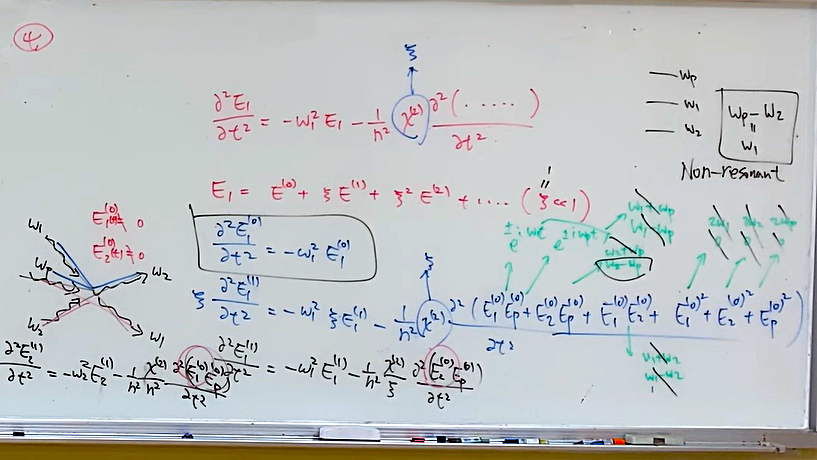 4.
ξ
∂²E₁/∂t² = -ω₁² E₁ - 1/n² χ⁽²⁾ ∂²(.....)/∂t²
ωp
ω₁
ω₂
ωp - ω₂
=
ω₁
Non-resonant
E₁ = E⁽⁰⁾ + ξ E⁽¹⁾ + ξ² E⁽²⁾ + .... (ξ<<1)
∂²E₁⁽⁰⁾/∂t² = -ω₁² E₁⁽⁰⁾
ω₁+ωp
ω₁-ωp
2ω₁ 2ω₂ 2ωp
0 0 0
ω₂+ωp
ω₂-ωp
ω₁
ωp
ω₂
ω₂
ω₁
ξ
ξ ∂²E₁⁽¹⁾/∂t² = -ω₁² ξE₁⁽¹⁾ - 1/n² χ⁽²⁾ ∂²(E₁⁽⁰⁾Ep⁽⁰⁾ + E₂⁽⁰⁾Ep⁽⁰⁾ + E₁⁽⁰⁾E₂⁽⁰⁾ + E₁⁽⁰⁾² + E₂⁽⁰⁾² + Ep⁽⁰⁾²)/∂t²
ω₁+ω₂
ω₁-ω₂
∂²E₂⁽¹⁾/∂t² = -ω₂²E₂⁽¹⁾ - 1/n² χ⁽²⁾/n² ∂²(E₁⁽⁰⁾Ep⁽⁰⁾)/∂t²
∂²E₁⁽¹⁾/∂t² = -ω₁² E₁⁽¹⁾ - 1/n² χ⁽²⁾/ξ ∂²(E₂⁽⁰⁾Ep⁽⁰⁾)/∂t²